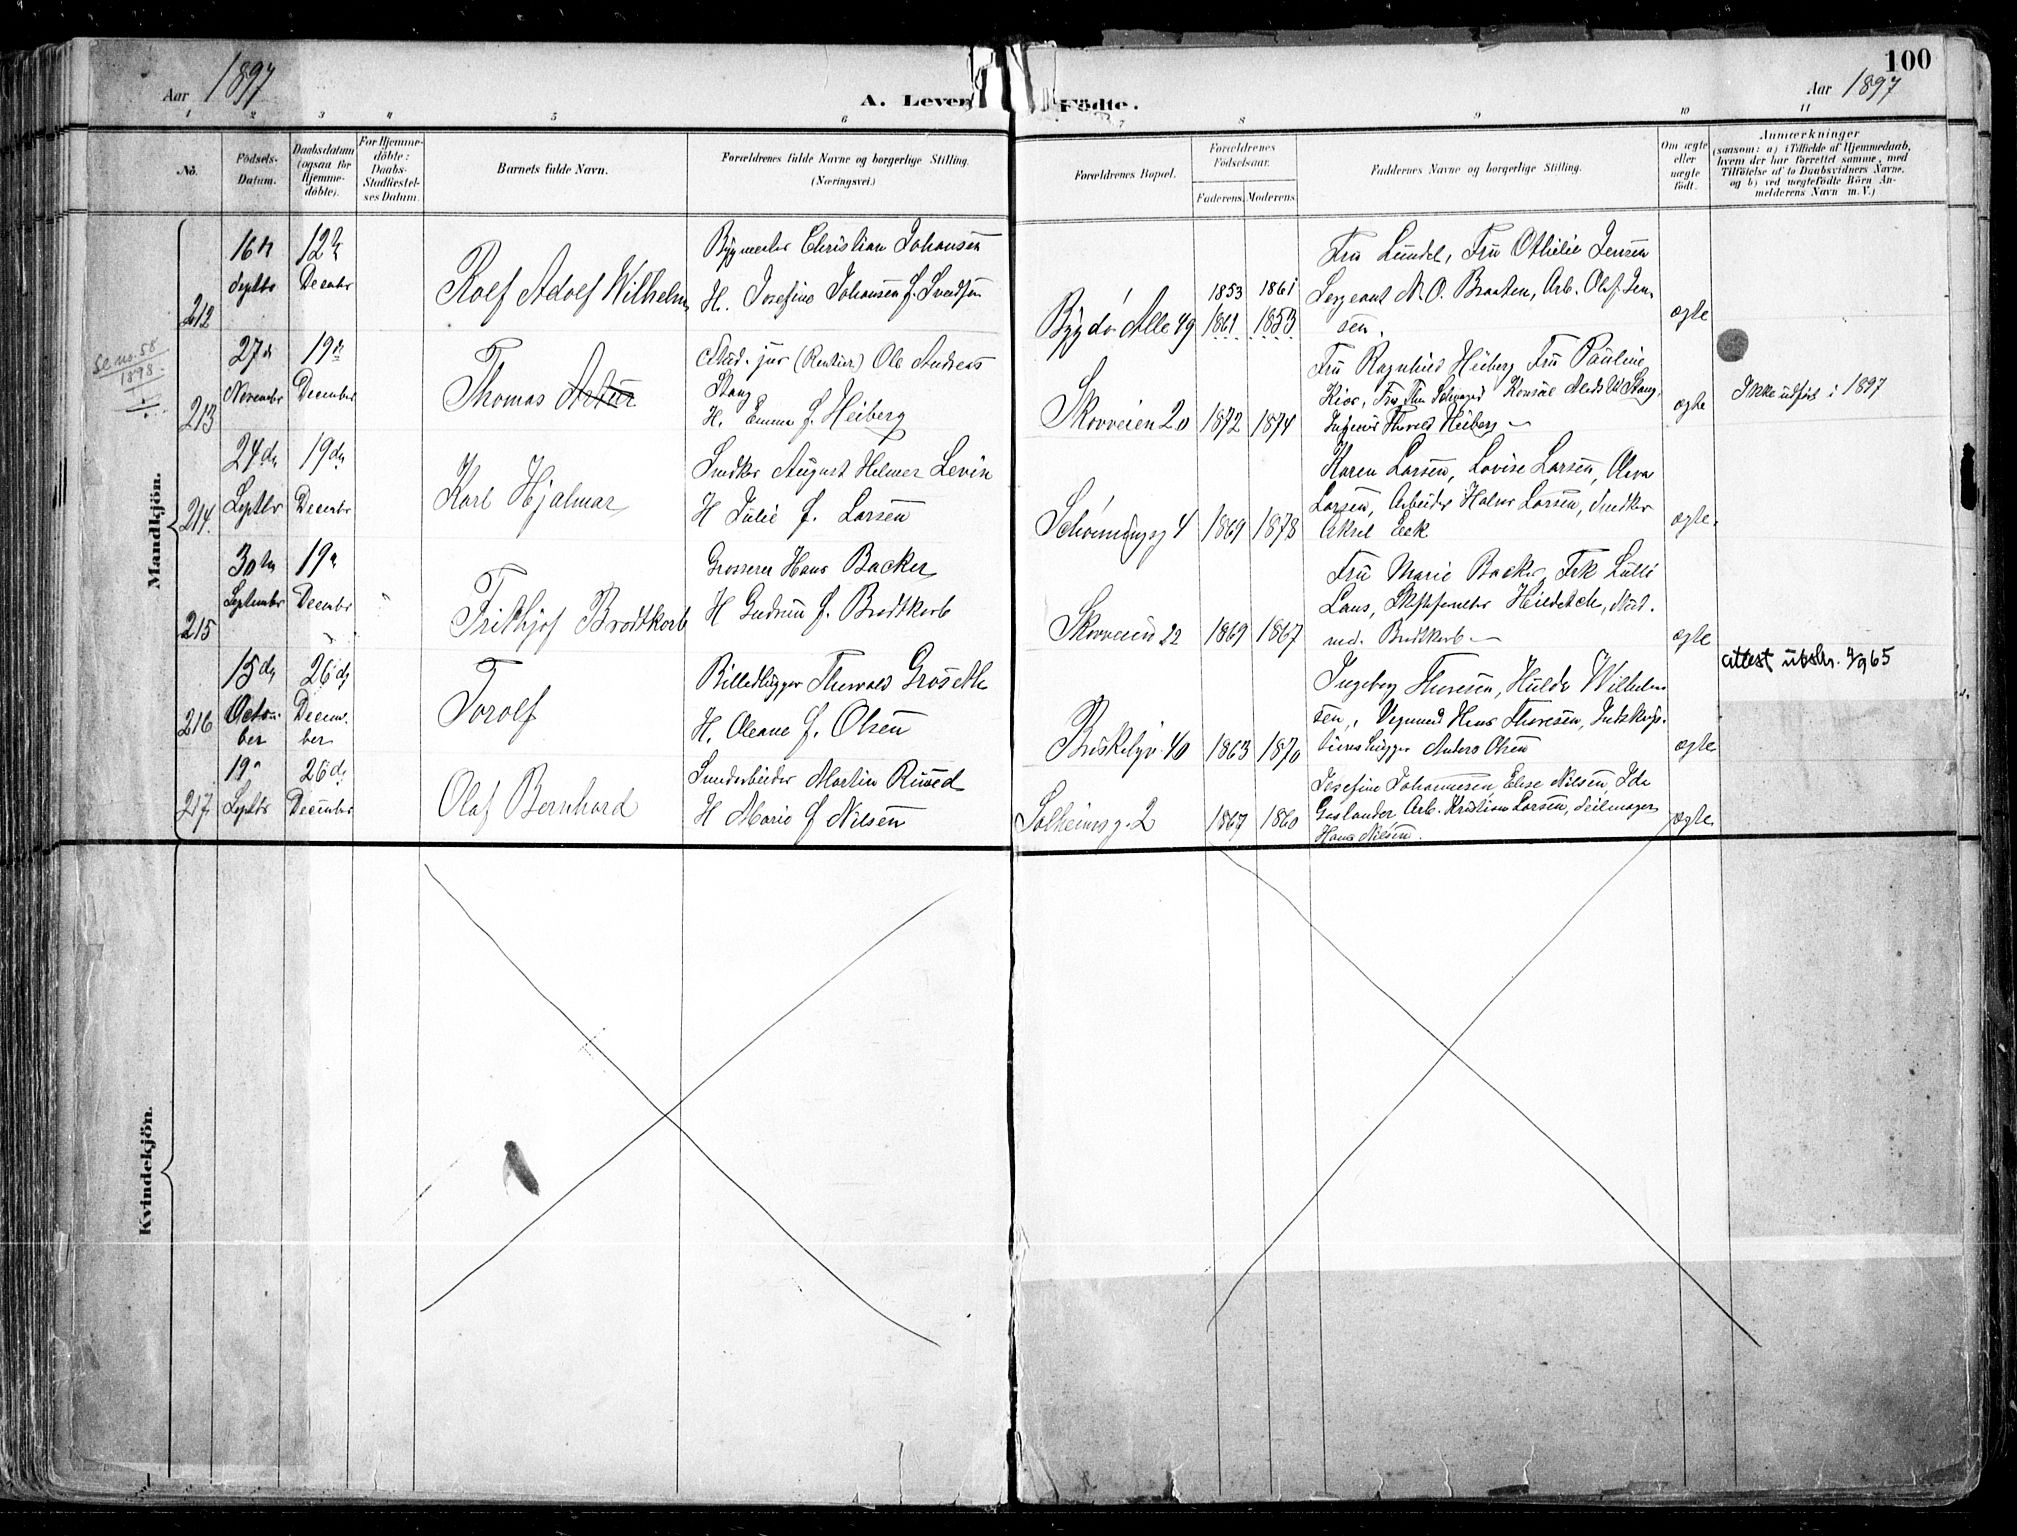 100
Aar 1897
A. Leven Fødte.
Aar 1897
1 2 3 4 5 6 7 8 9 10 11
No.
Fødsels-Datum.
Daabsdatum (ogsaa for Hjemmedøbte).
For Hjemmedøbte: Daabs-Stadfæstelses Datum.
Barnets fulde Navn.
Forældrenes fulde Navne og borgerlige Stilling. (Næringsvei.)
Forældrenes Bopæl.
Forældrenes Fødselsaar.
Faderens. Moderens.
Faddernes Navne og borgerlige Stilling.
Om ægte eller uægte født.
Anmærkninger
(saasom: a) i Tilfælde af Hjemmedaab,
hvem der har forrettet samme, med
Tilføielse af to Daabsvidners Navne,
og b) ved uægtefødte Børn Anmelderens Navn m. V.)
Mandkjön.
212 16de Septbr 12te Decmbr
Rolf Adolf Wilhelm
Bygmester Christian Johansen
H. Josefine Johansen f. Svendsen
Bygdø Alle 49
1853 1861
1861 1853
Fru Lundel, Fru Othilie Jensen
Sergeant N. O. Braaten, Arb. Olaf Jensen.
ægte
Se no. 58
1898.
213 27de November 19de December
Thomas Artur
Stud. jur (Rentier) Ole Andreas
Stang
H. Emma f. Heiberg
Skovveien 20
1872 1874
Fru Ragnhild Heiberg Fru Pauline
Kiær, Konsul Mads W. Stang,
Ingeniør Thorvald Heiberg
ægte
Ikke udført i 1897
214 24de Septbr 19de Decembr
Karl Hjalmar
Snedker August Helmer Levin
H Julie f. Larsen
Schøningsg 4
1869 1878
Karen Larsen, Lovise Larsen, Oleva
Larsen, Arbeider Halvor Larsen, Snedker
Aksel Eek
ægte.
215 30te September 19de Decembr
Frithjof Brodtkorb
Grosserer Hans Backer
H Gudrun f. Brodtkorb
Skovveien 22
1869 1867
Fru Marie Backer, Frk Lulli
Lous, Stud.
med. Brodtkorb
ægte
attest utskr. 4/9 65
216 15de October 26de December
Torolf
Billedhugger Thorvald Grøseth
H. Oleane f. Olsen
Briskebyv. 40
1863 1870
Ingeborg Thoresen, Hulda Wilhelmsen, Vognmand Hans Thoresen, Anders Olsen
ægte
217 19de Septbr 26de December
Olaf Bernhard
Martin Ruud
H Marie f Nilsen
Solheimsg. 2
1867 1860
Josefine Johannesen, Else Nilsen, Ida
Gaslander, Arb. Kristian Larsen, Seilmager
Hans Nilsen.
ægte.
Kvindekjön.